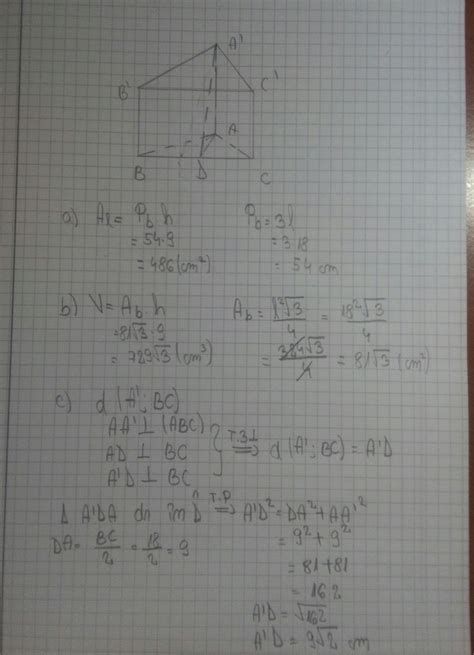 A'
B'
C'
A
B
D
C
a) Al = Pb·h
= 54·9
= 486 (cm²)
Pb = 3l
= 3·18
= 54 cm
b) V = Ab·h
= 81√3·9
= 729√3 (cm³)
Ab = l²√3/4 = 18²√3/4
= 324√3/4 = 81√3 (cm²)
c) d (A'; BC)
AA' ⊥ (ABC)
AD ⊥ BC
A'D ⊥ BC
} T.3⊥ ⟹ d (A'; BC) = A'D
Δ A'DA dr în D̂ T.P ⟹ A'D² = DA² + AA'²
DA = BC/2 = 18/2 = 9
= 9² + 9²
= 81 + 81
= 162
A'D = √162
A'D = 9√2 cm